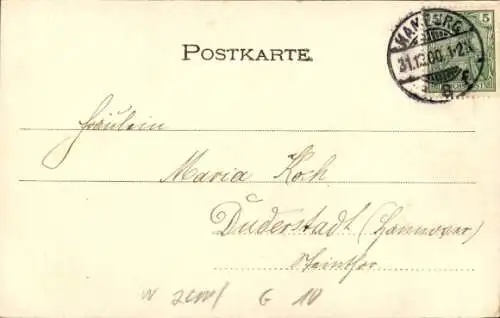 POSTKARTE.
5
HAMBURG
31.12.00. 1-2N
Fräulein
Maria Koch
Duderstadt (Hannover)
Steinthor
G 10